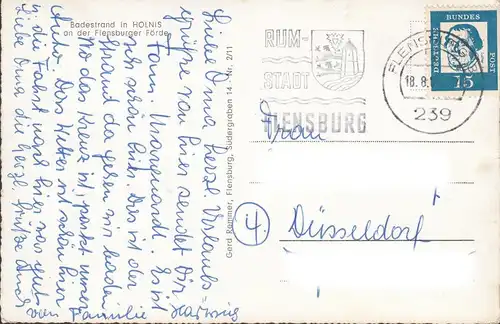 Badestrand in HOLNIS
an der Flensburger Förde
Liebe Oma herzl. Urlaubs
grüße von hier sendet Dir
Fam. Es ist
sehr schön hier. Dies ist der
Strand da gehen wir baden
wo das Kreuz ist, parkt unser
Auto. Das Wetter ist schön hier
u. die Fahrt nach hier war gut
Liebe Oma die herzl. Grüße Dir
von Familie Hartwig
Gerd Remmer, Flensburg, Südergraben 14 · Nr. 2/11
RUM-
STADT
FLENSBURG
FLENSBURG
18.8.
239
DEUTSCHE
BUNDESPOST
15
Frau
4 Düsseldorf